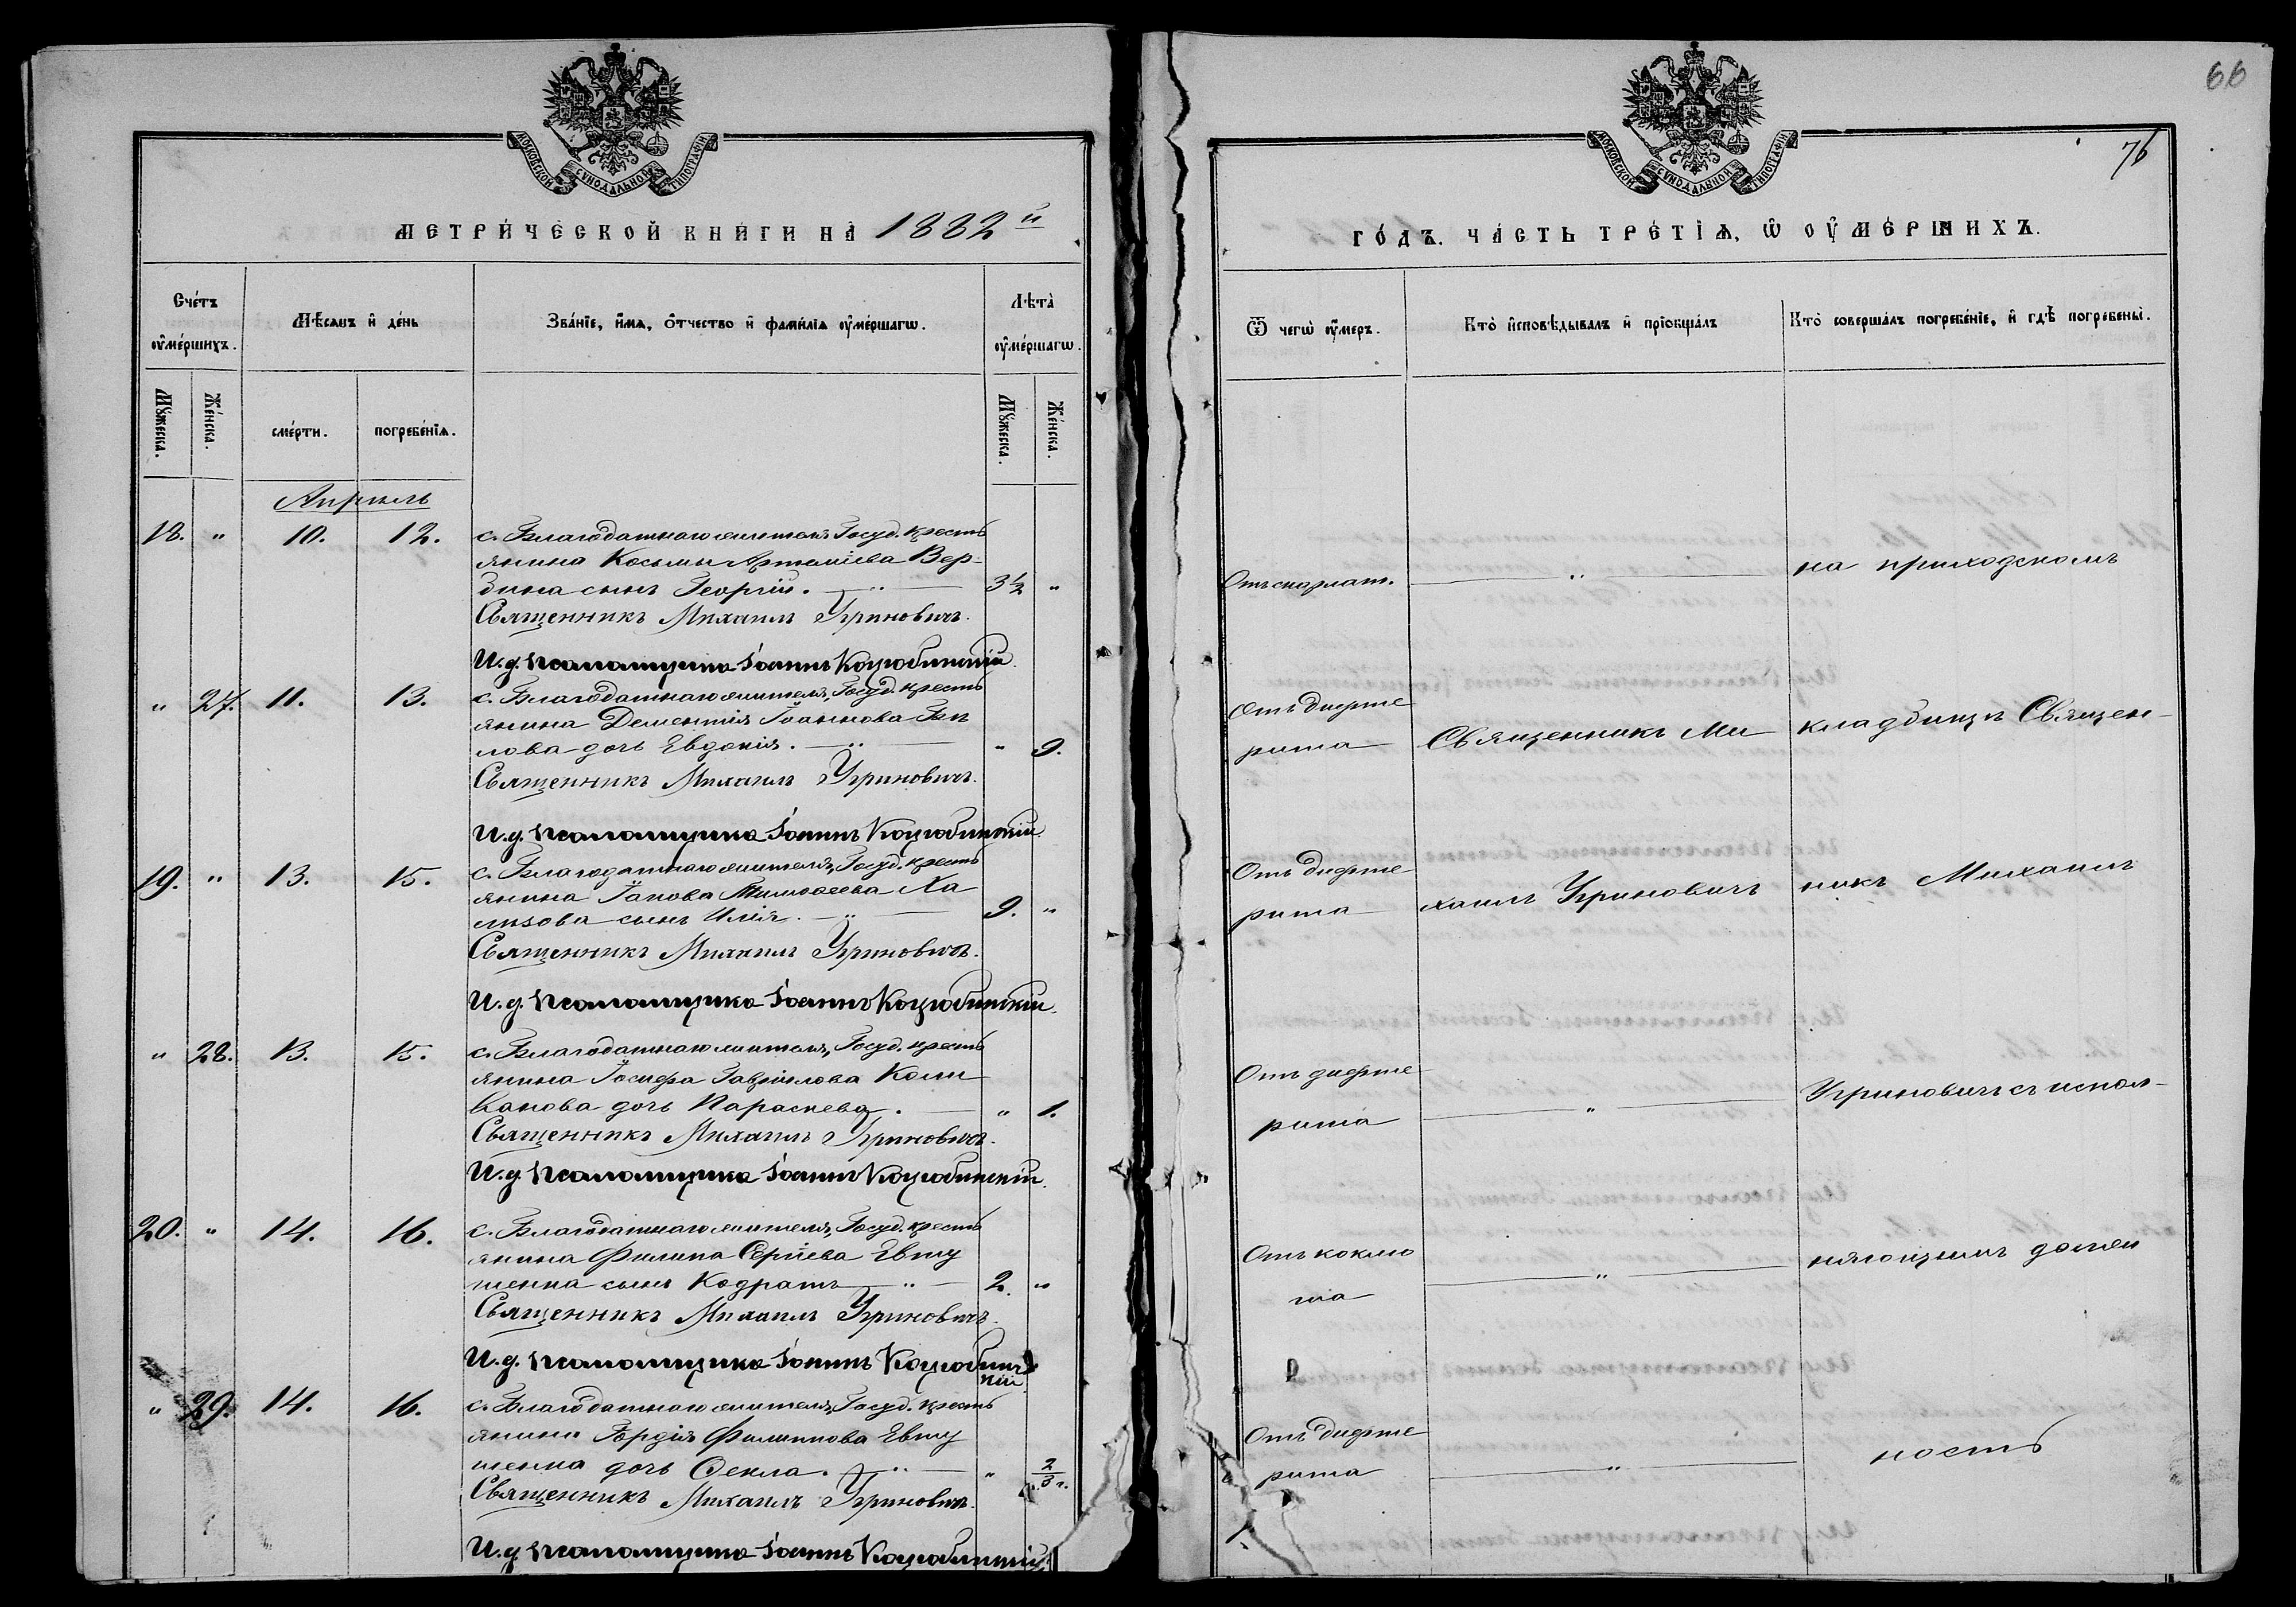 66
76
МОСКОВСКОЙ СѴНОДАЛЬНОЙ ТИПОГРАФІИ
МЕТРИ́ЧЕСКОЙ КНИ́ГИ НА̀ 1882й
Сче́тъ оу҆ме́ршихъ.
Мѣ́сяцъ и҆ де́нь
Зва́нїе, и҆́мѧ, ѻ҆́тчество и҆ фами́лїѧ оу҆ме́ршагѡ.
Лѣта̀ оу҆ме́ршагѡ.
Мꙋ́жеска.
Же́нска.
сме́рти.
погребе́нїѧ.
Мꙋ́жеска.
Же́нска.
Апрѣль
18. " 10. 12. с. Благодатнаго жителя, Госуд. кресть
янина Косьмы Артеміева Вер-
бина сынъ Георгій. 3½ "
Священникъ Михаилъ Угриновичъ.
И. д. псаломщика Іоаннъ Коцюбинскій.
" 27. 11. 13. с. Благодатнаго жителя, Госуд. кресть
янина Дементія Іоаннова
лова дочь Евдокія. " 9.
Священникъ Михаилъ Угриновичъ.
И. д. псаломщика Іоаннъ Коцюбинскій.
19. " 13. 15. с. Благодатнаго жителя, Госуд. кресть
янина Іакова Тимоѳеева Ха
лизова сынъ Илія. 9. "
Священникъ Михаилъ Угриновичъ.
И. д. псаломщика Іоаннъ Коцюбинскій.
" 28. 13. 15. с. Благодатнаго жителя, Госуд. кресть
янина Іосифа Гавріилова Коли
канова дочь Параскева. " 1.
Священникъ Михаилъ Угриновичъ.
И. д. псаломщика Іоаннъ Коцюбинскій.
20. " 14. 16. с. Благодатнаго жителя, Госуд. кресть
янина Филипа Сергіева Евту
шенка сынъ Кодратъ 2. "
Священникъ Михаилъ Угриновичъ.
И. д. псаломщика Іоаннъ Коцюбинс
кій.
" 29. 14. 16. с. Благодатнаго жителя, Госуд. кресть
янина Гордія Филиппова Евту
шенка дочь Ѳекла. " 2/3 г.
Священникъ Михаилъ Угриновичъ.
И. д. псаломщика Іоаннъ Коцюбинскій.
МОСКОВСКОЙ СѴНОДАЛЬНОЙ ТИПОГРАФІИ
ГО́ДЪ. ЧА́СТЬ ТРЕ́ТІѦ, Ѡ҆ ОУ҆МЕ́РШИХЪ.
Ѿ чегѡ̀ оу҆́меръ.
Кто̀ и҆сповѣ́дывалъ и҆ прїобща́лъ
Кто̀ соверша́лъ погребе́нїе, и҆ гдѣ̀ погребены̀.
Отъ скарлат. " на приходскомъ
Отъ дифте
рита Священникъ Ми кладбищѣ Священ-
Отъ дифте
рита хаилъ Угриновичъ никъ Михаилъ
Отъ дифте
рита " Угриновичъ съ испол-
Отъ коклю
ша " няющимъ долж
Отъ дифте
рита " ность